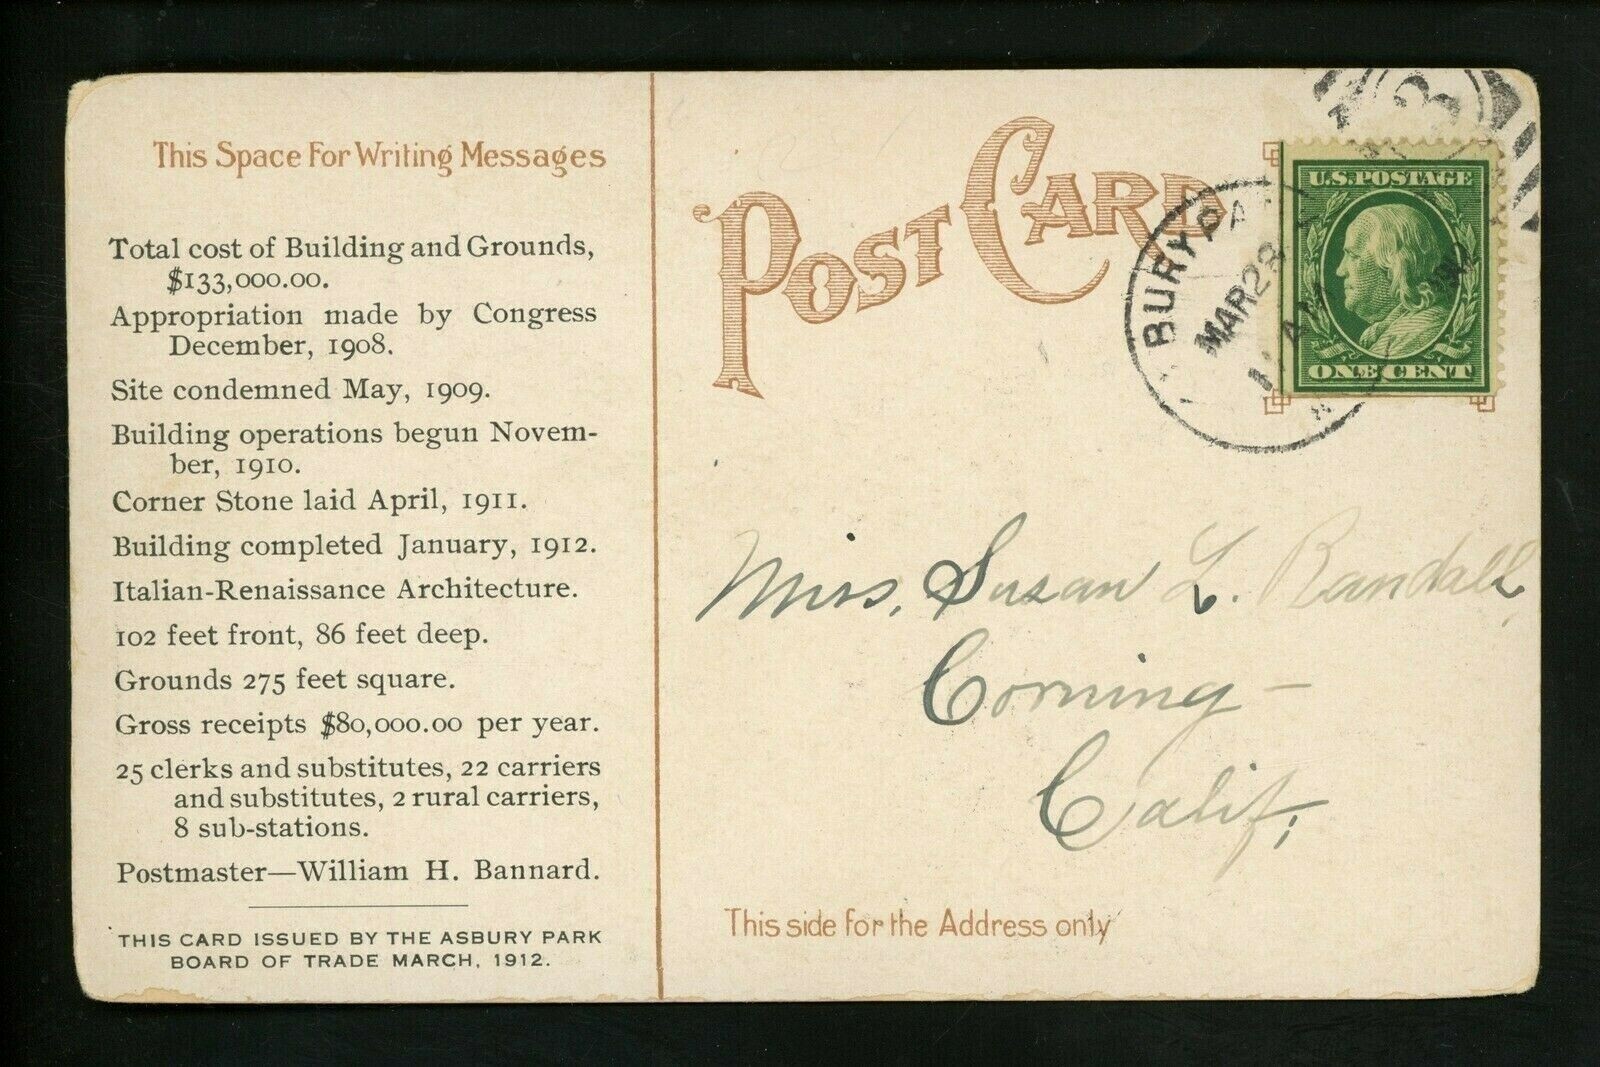 This Space For Writing Messages
Total cost of Building and Grounds,
$133,000.00.
Appropriation made by Congress
December, 1908.
Site condemned May, 1909.
Building operations begun Novem-
ber, 1910.
Corner Stone laid April, 1911.
Building completed January, 1912.
Italian-Renaissance Architecture.
102 feet front, 86 feet deep.
Grounds 275 feet square.
Gross receipts $80,000.00 per year.
25 clerks and substitutes, 22 carriers
and substitutes, 2 rural carriers,
8 sub-stations.
Postmaster—William H. Bannard.
THIS CARD ISSUED BY THE ASBURY PARK
BOARD OF TRADE MARCH, 1912.
POST CARD
BURY PA
MAR 28
AM
3
U.S. POSTAGE
ONE CENT
Miss. Susan L. Randall,
Corning –
Calif.
This side for the Address only